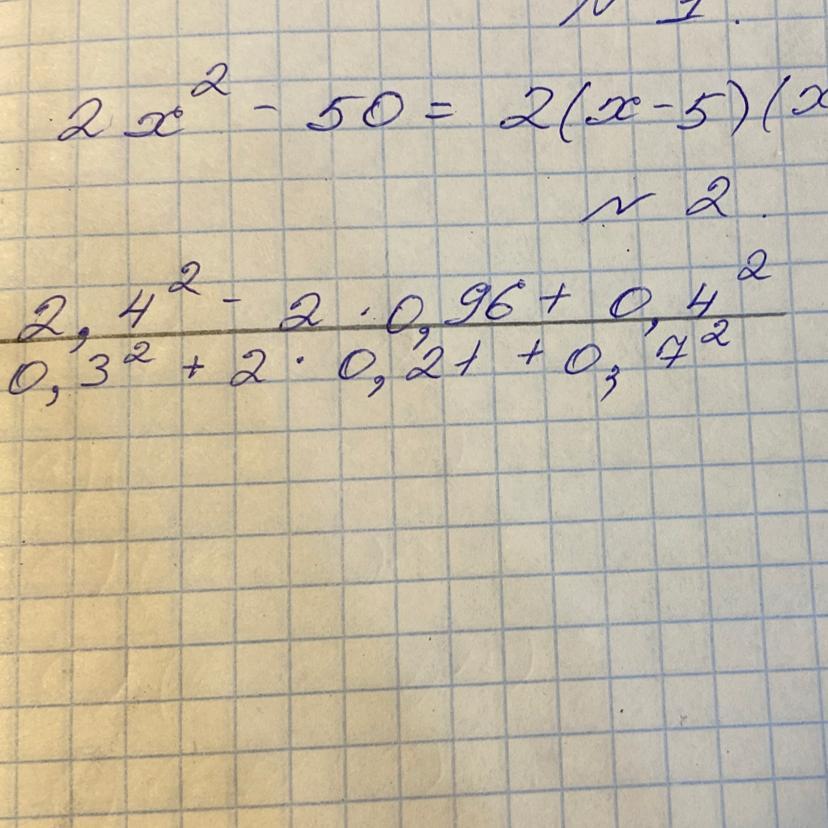 № 1.
2x² - 50 = 2(x-5)(x
№ 2.
2,4² - 2 · 0,96 + 0,4²
0,3² + 2 · 0,21 + 0,7²